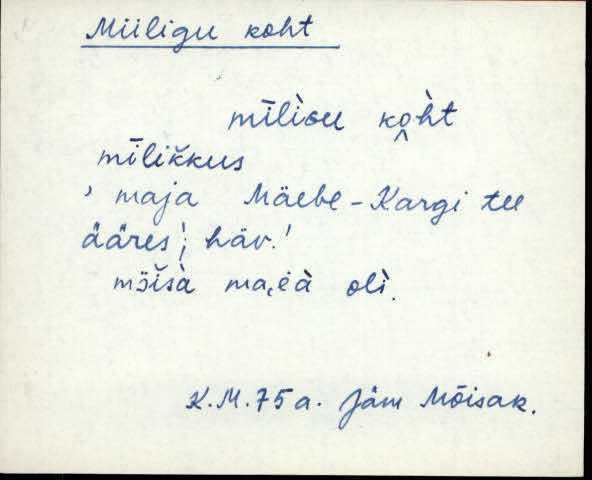 Miiligu koht
mīlìɢu kо̭h̀t
mīlikkus
' maja Mäebe-Kargi tee
ääres; häv.'
mȭisà ma,eà olì.
K.M. 75 a. Jäm Mõisak.